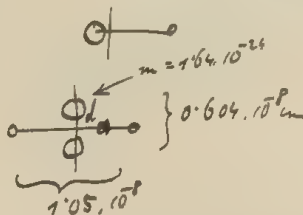 m = 1·64.10⁻²⁴
d
0·604.10⁻⁸ cm
1·05.10⁻⁸